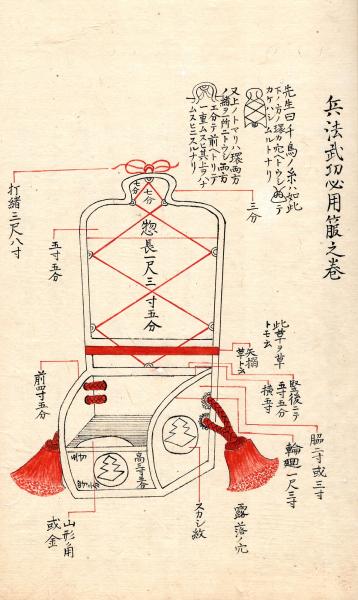 兵法武功必用箙之巻
先生曰千鳥ノ糸ハ如此
下ノ方ノ環カ穴ヘトウシ如此〆テ
カケハシムルトナリ
又上ノトマリハ環両方
ノ緒ヲ一所ニトウシ両方
エ分テ前ヘトリテ
一重ムスヒ其上ヲハナ
ムスヒニスルナリ
七分
七分
三分
打緒三尺八寸
五寸五分
惣長一尺三寸五分
此革ヲ草
トモ云
矢搦
革トス
竪後ニテ
五寸五分
横五寸
脇二寸或三寸
輪廻一尺三寸
露落ノ穴
スカシ紋
高三寸五分
前四寸五分
山形ハ角
或金